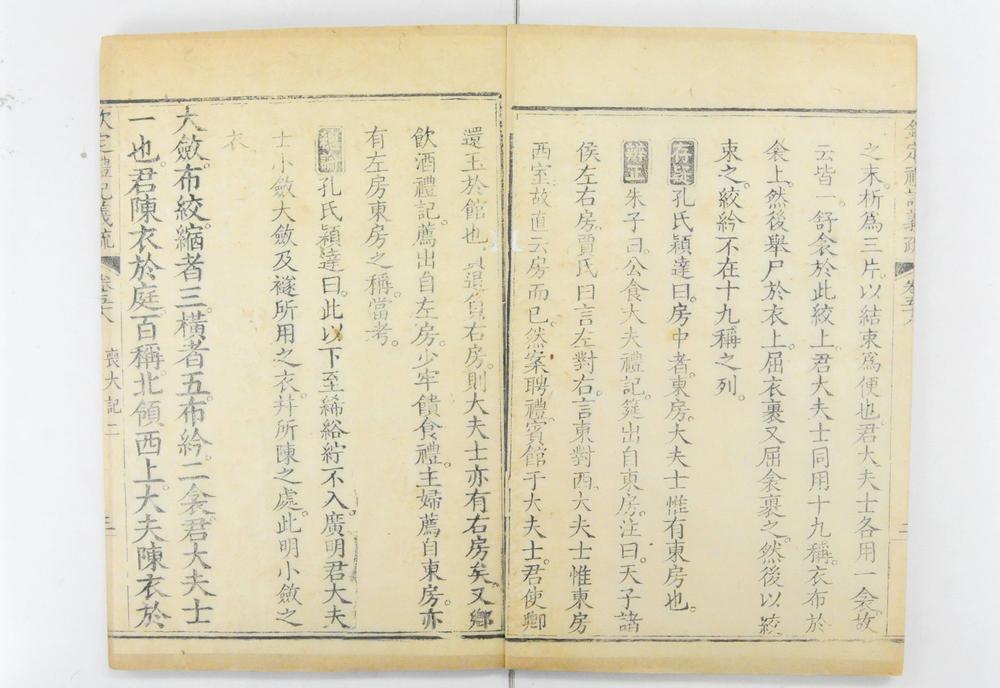 欽定禮記義疏 卷五十八 二
之末析爲三片以結束爲便也君大夫士各用一衾故
云皆一舒衾於此絞上君大夫士同用十九稱衣布於
衾上然後舉尸於衣上屈衣裹又屈衾裹之然後以絞
束之絞紟不在十九稱之列
存疑孔氏穎達曰房中者東房大夫士惟有東房也
辨正朱子曰公食大夫禮記筵出自東房注曰天子諸
侯左右房賈氏曰言左對右言東對西大夫士惟東房
西室故直云房而已然案聘禮賓館于大夫士君使卿
還玉於館也賓退負右房則大夫士亦有右房矣又鄉
飲酒禮記薦出自左房少牢饋食禮主婦薦自東房亦
有左房東房之稱當考
總論孔氏穎達曰此以下至絺綌紵不入廣明君大夫
士小斂大斂及襚所用之衣并所陳之處此明小斂之
衣
大斂布絞縮者三橫者五布紟二衾君大夫士
一也君陳衣於庭百稱北領西上大夫陳衣於
欽定禮記義疏 卷五十八 喪大記二 三